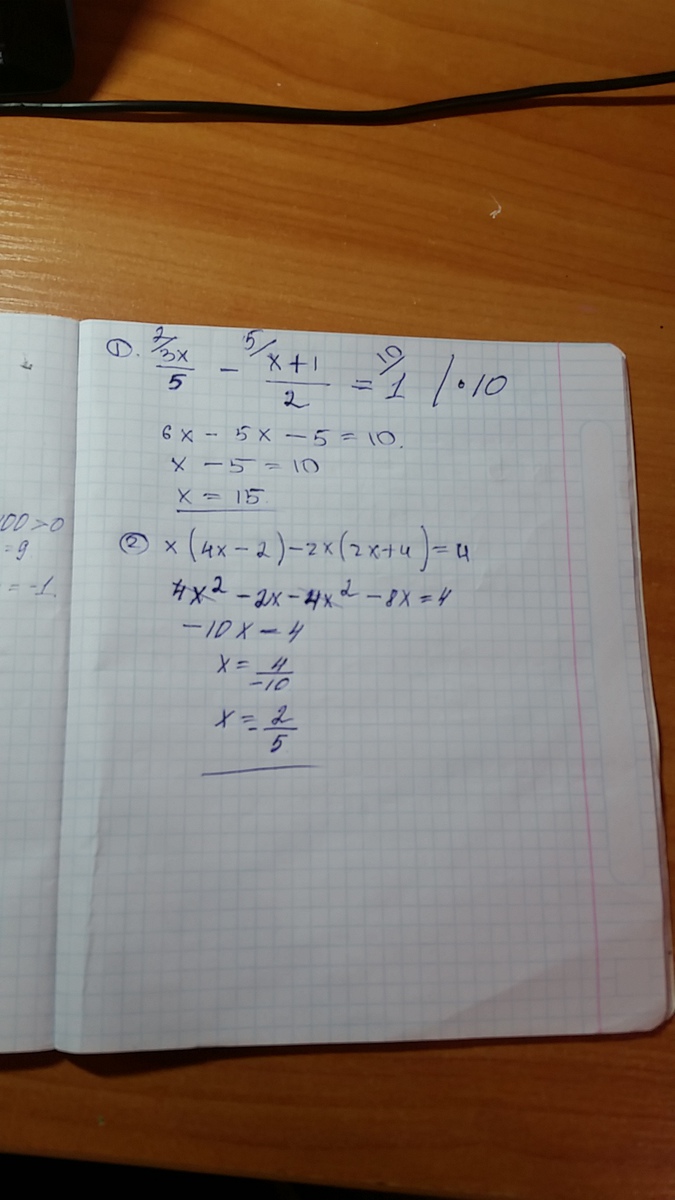 00>0
=9
=-1.
①. 2/ 3x/5 - 5/ (x+1)/2 = 10/ 1 / • 10
6x - 5x - 5 = 10.
x - 5 = 10
x = 15
② x(4x-2)-2x(2x+4)=4
4x² - 2x - 4x² - 8x = 4
-10x = 4
x = 4/-10
x = - 2/5